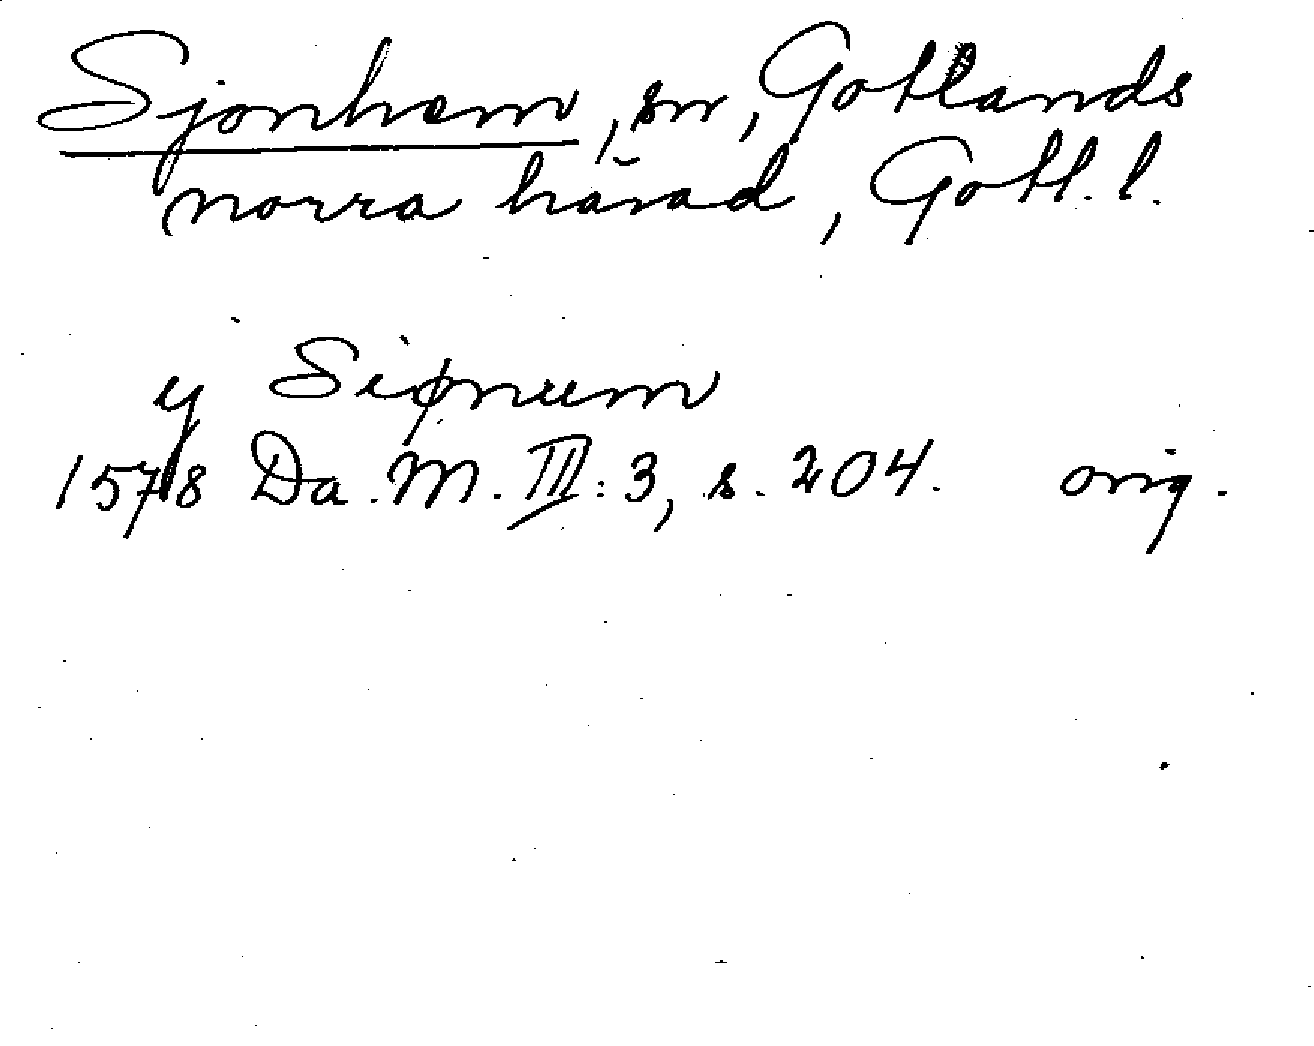 Sjonhem, sn, Gotlands
norra härad, Gotl. l.
y Siønum
1578 Da. M. III: 3, s. 204. orig.